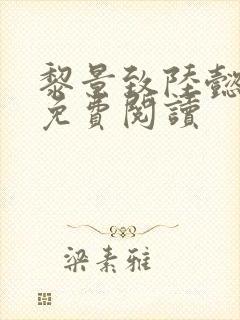 黎景致陸懿
免費閱讀
梁素雅